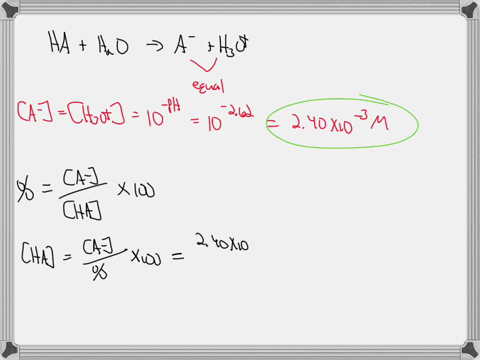 HA + H₂O → A⁻ + H₃O⁺
equal
[A⁻] = [H₃O⁺] = 10^-PH = 10^-2.62 = 2.40 x 10⁻³ M
% = [A⁻] / [HA] x 100
[HA] = [A⁻] / % x 100 = 2.40 x 10